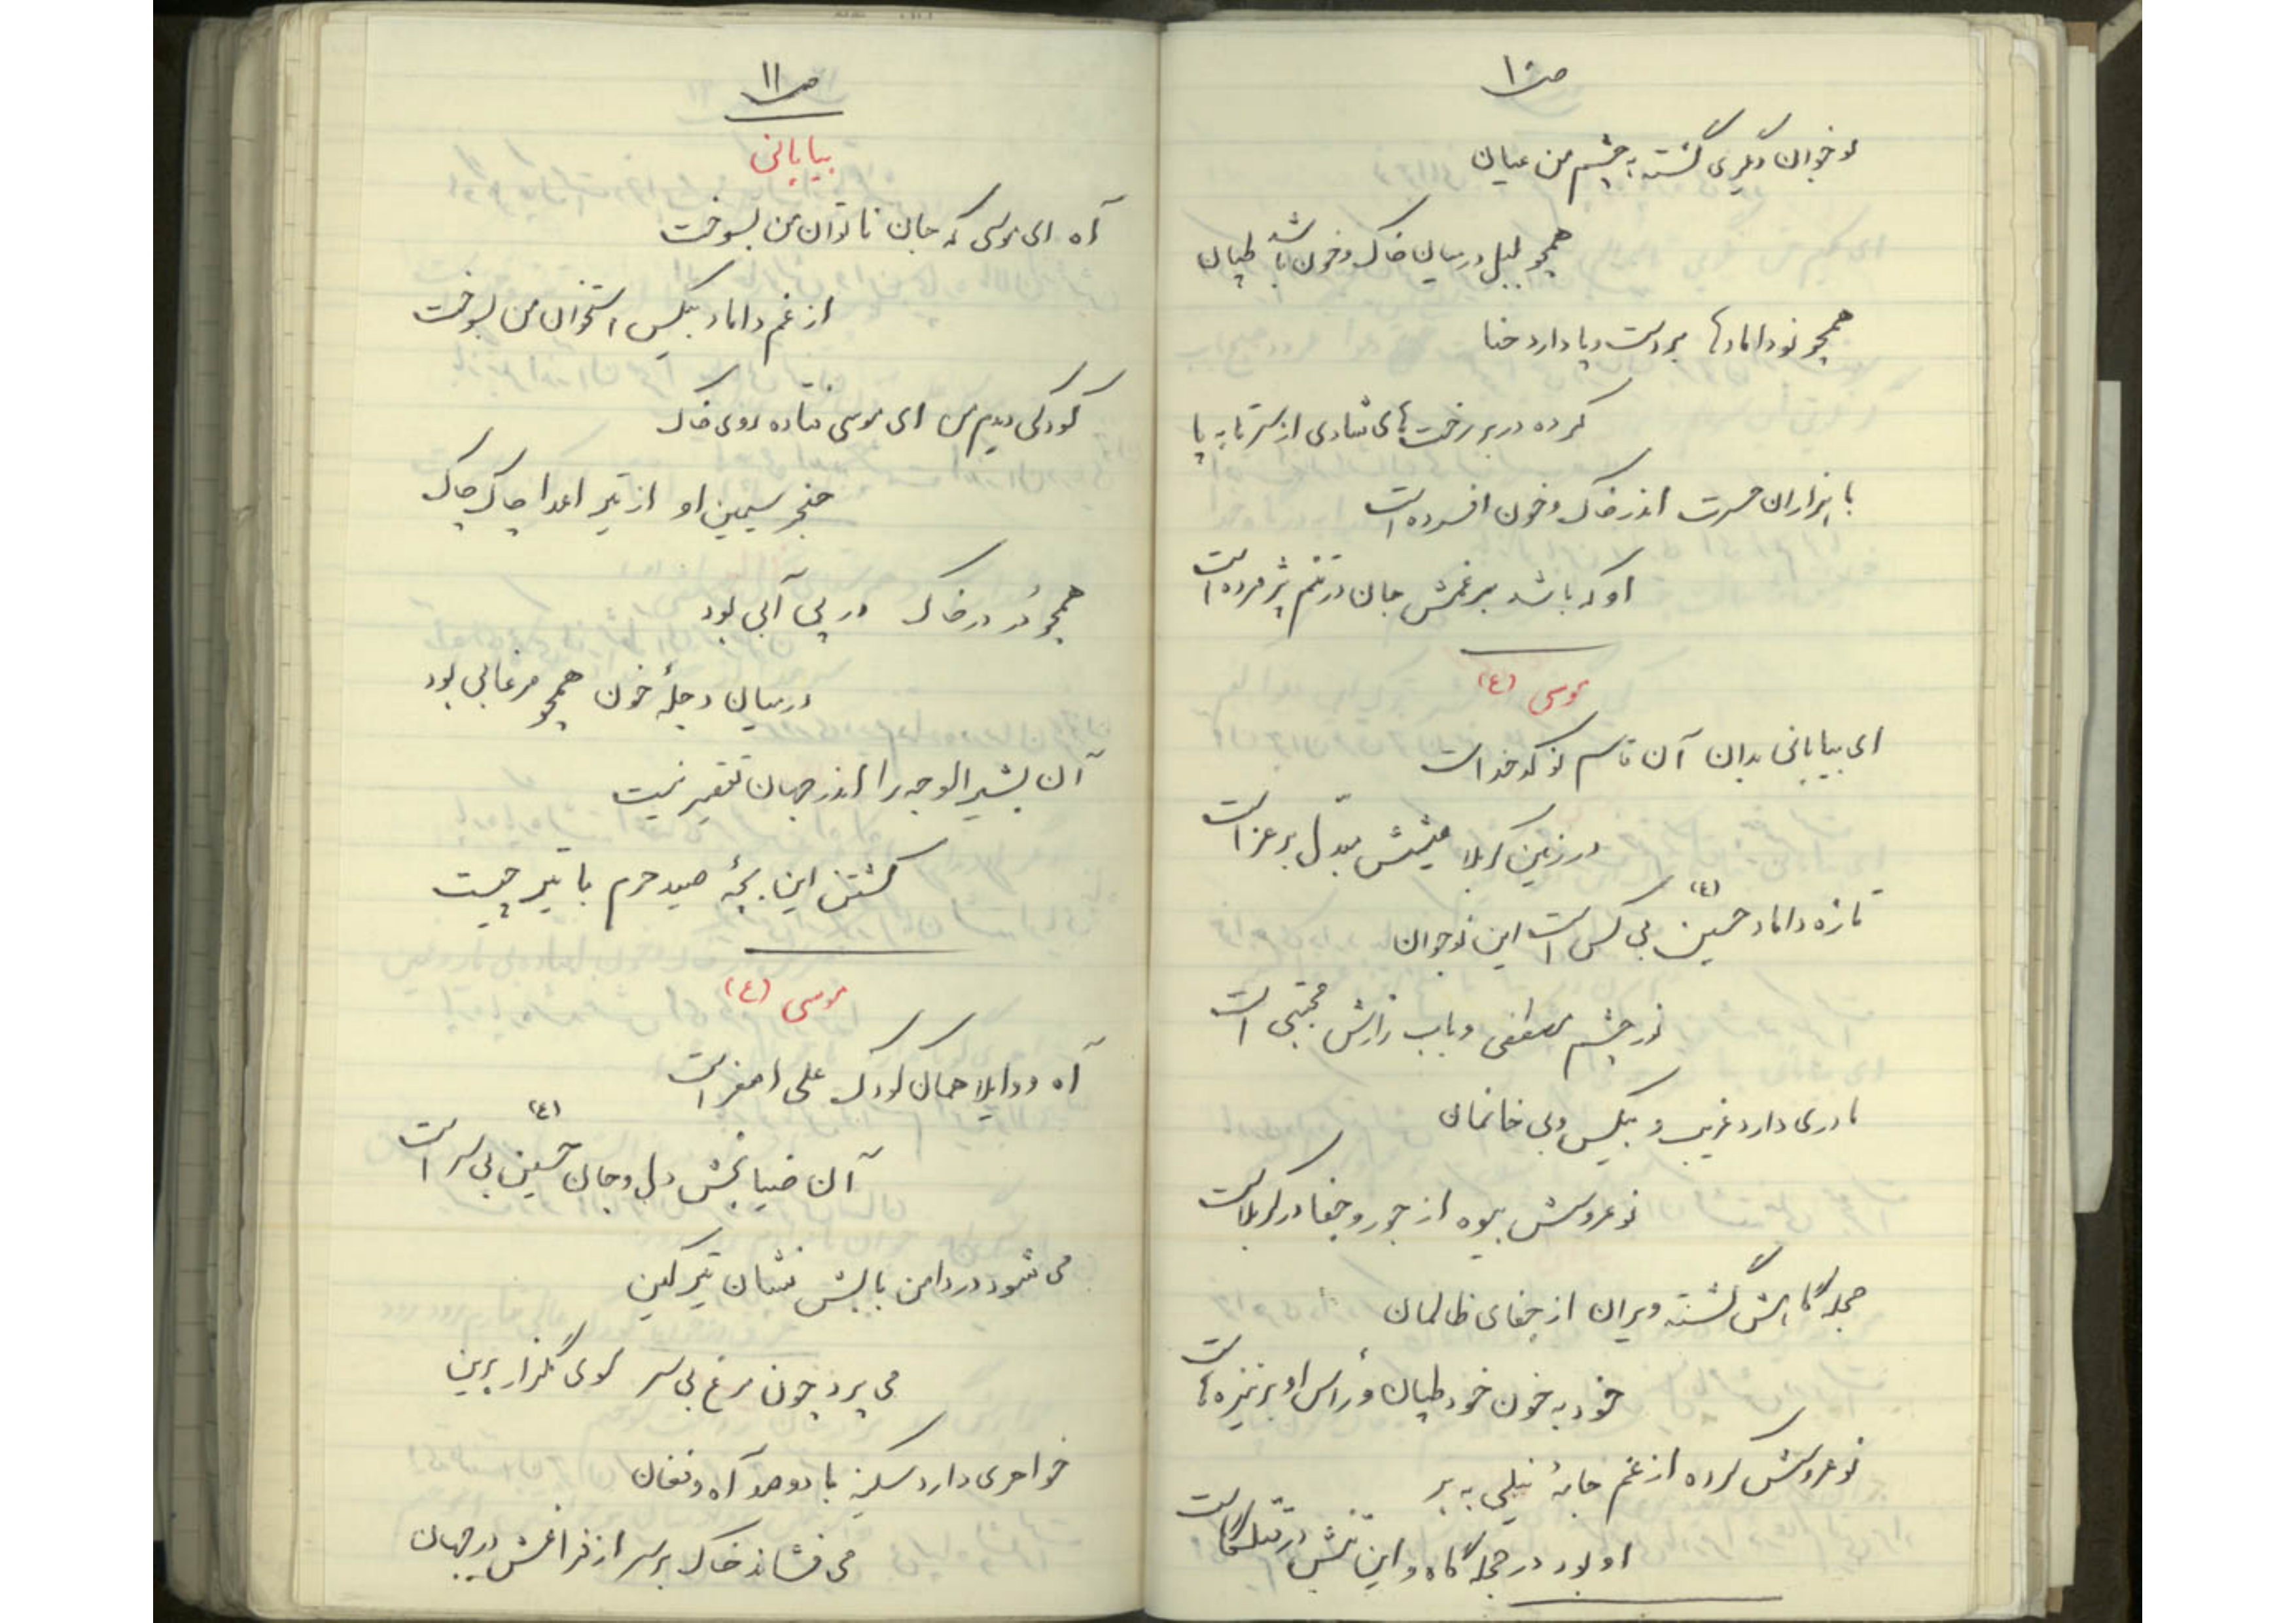 ص ۱۰
نوخوان دیگری گشته به چشم من عیان
همچو بلبل در میان خاک و خون باشد طپان
همچو نو دامادها بر دست و پا دارد حنا
کرده در بر رخت های شادی از سر تا به پا
با هزاران حسرت اندر خاک و خون افسرده است
او که باشد بر غمش جان در تنم پژمرده است
موسی (ع)
ای بیابانی بدان آن قاسم نوکدخداست
در زمین کربلا عیشش مبدل بر عزاست
تازه داماد حسین (ع) بی کس است این نوجوان
نور چشم مصطفی و باب زارش مجتبی است
مادری دارد غریب و بیکس و بی خانمان
نوعروسش بیوه از جور و جفا در کربلاست
حجله گاهش گشته ویران از جفای ظالمان
خود به خون خود طپان و رأس او بر نیزه هاست
نوعروسش کرده از غم جامهٔ نیلی به بر
او بود در حجله گاه و این تنش در قتلگاست
ص ۱۱
بیابانی
آه ای موسی که جان ناتوان من بسوخت
از غم داماد بیکس استخوان من بسوخت
کودکی دیدم من ای موسی فتاده روی خاک
حنجر سیمین او از تیر اعدا چاک چاک
همچو دُر در خاک در پی آبی بود
در میان دجلهٔ خون همچو مرغابی بود
آن بشیر الوجه را اندر جهان تقصیر نیست
کشتن این بچهٔ صید حرم با تیر چیست
موسی (ع)
آه و واویلا همان کودک علی اصغر است
آن ضیابخش دل و جان حسین (ع) بی سر است
می شود در دامن بابش نشان تیر کین
می پرد چون مرغ بی سر سوی گلزار برین
خواهری دارد سکینه با دو صد آه و فغان
می فشاند خاک بر سر از فراغش در جهان